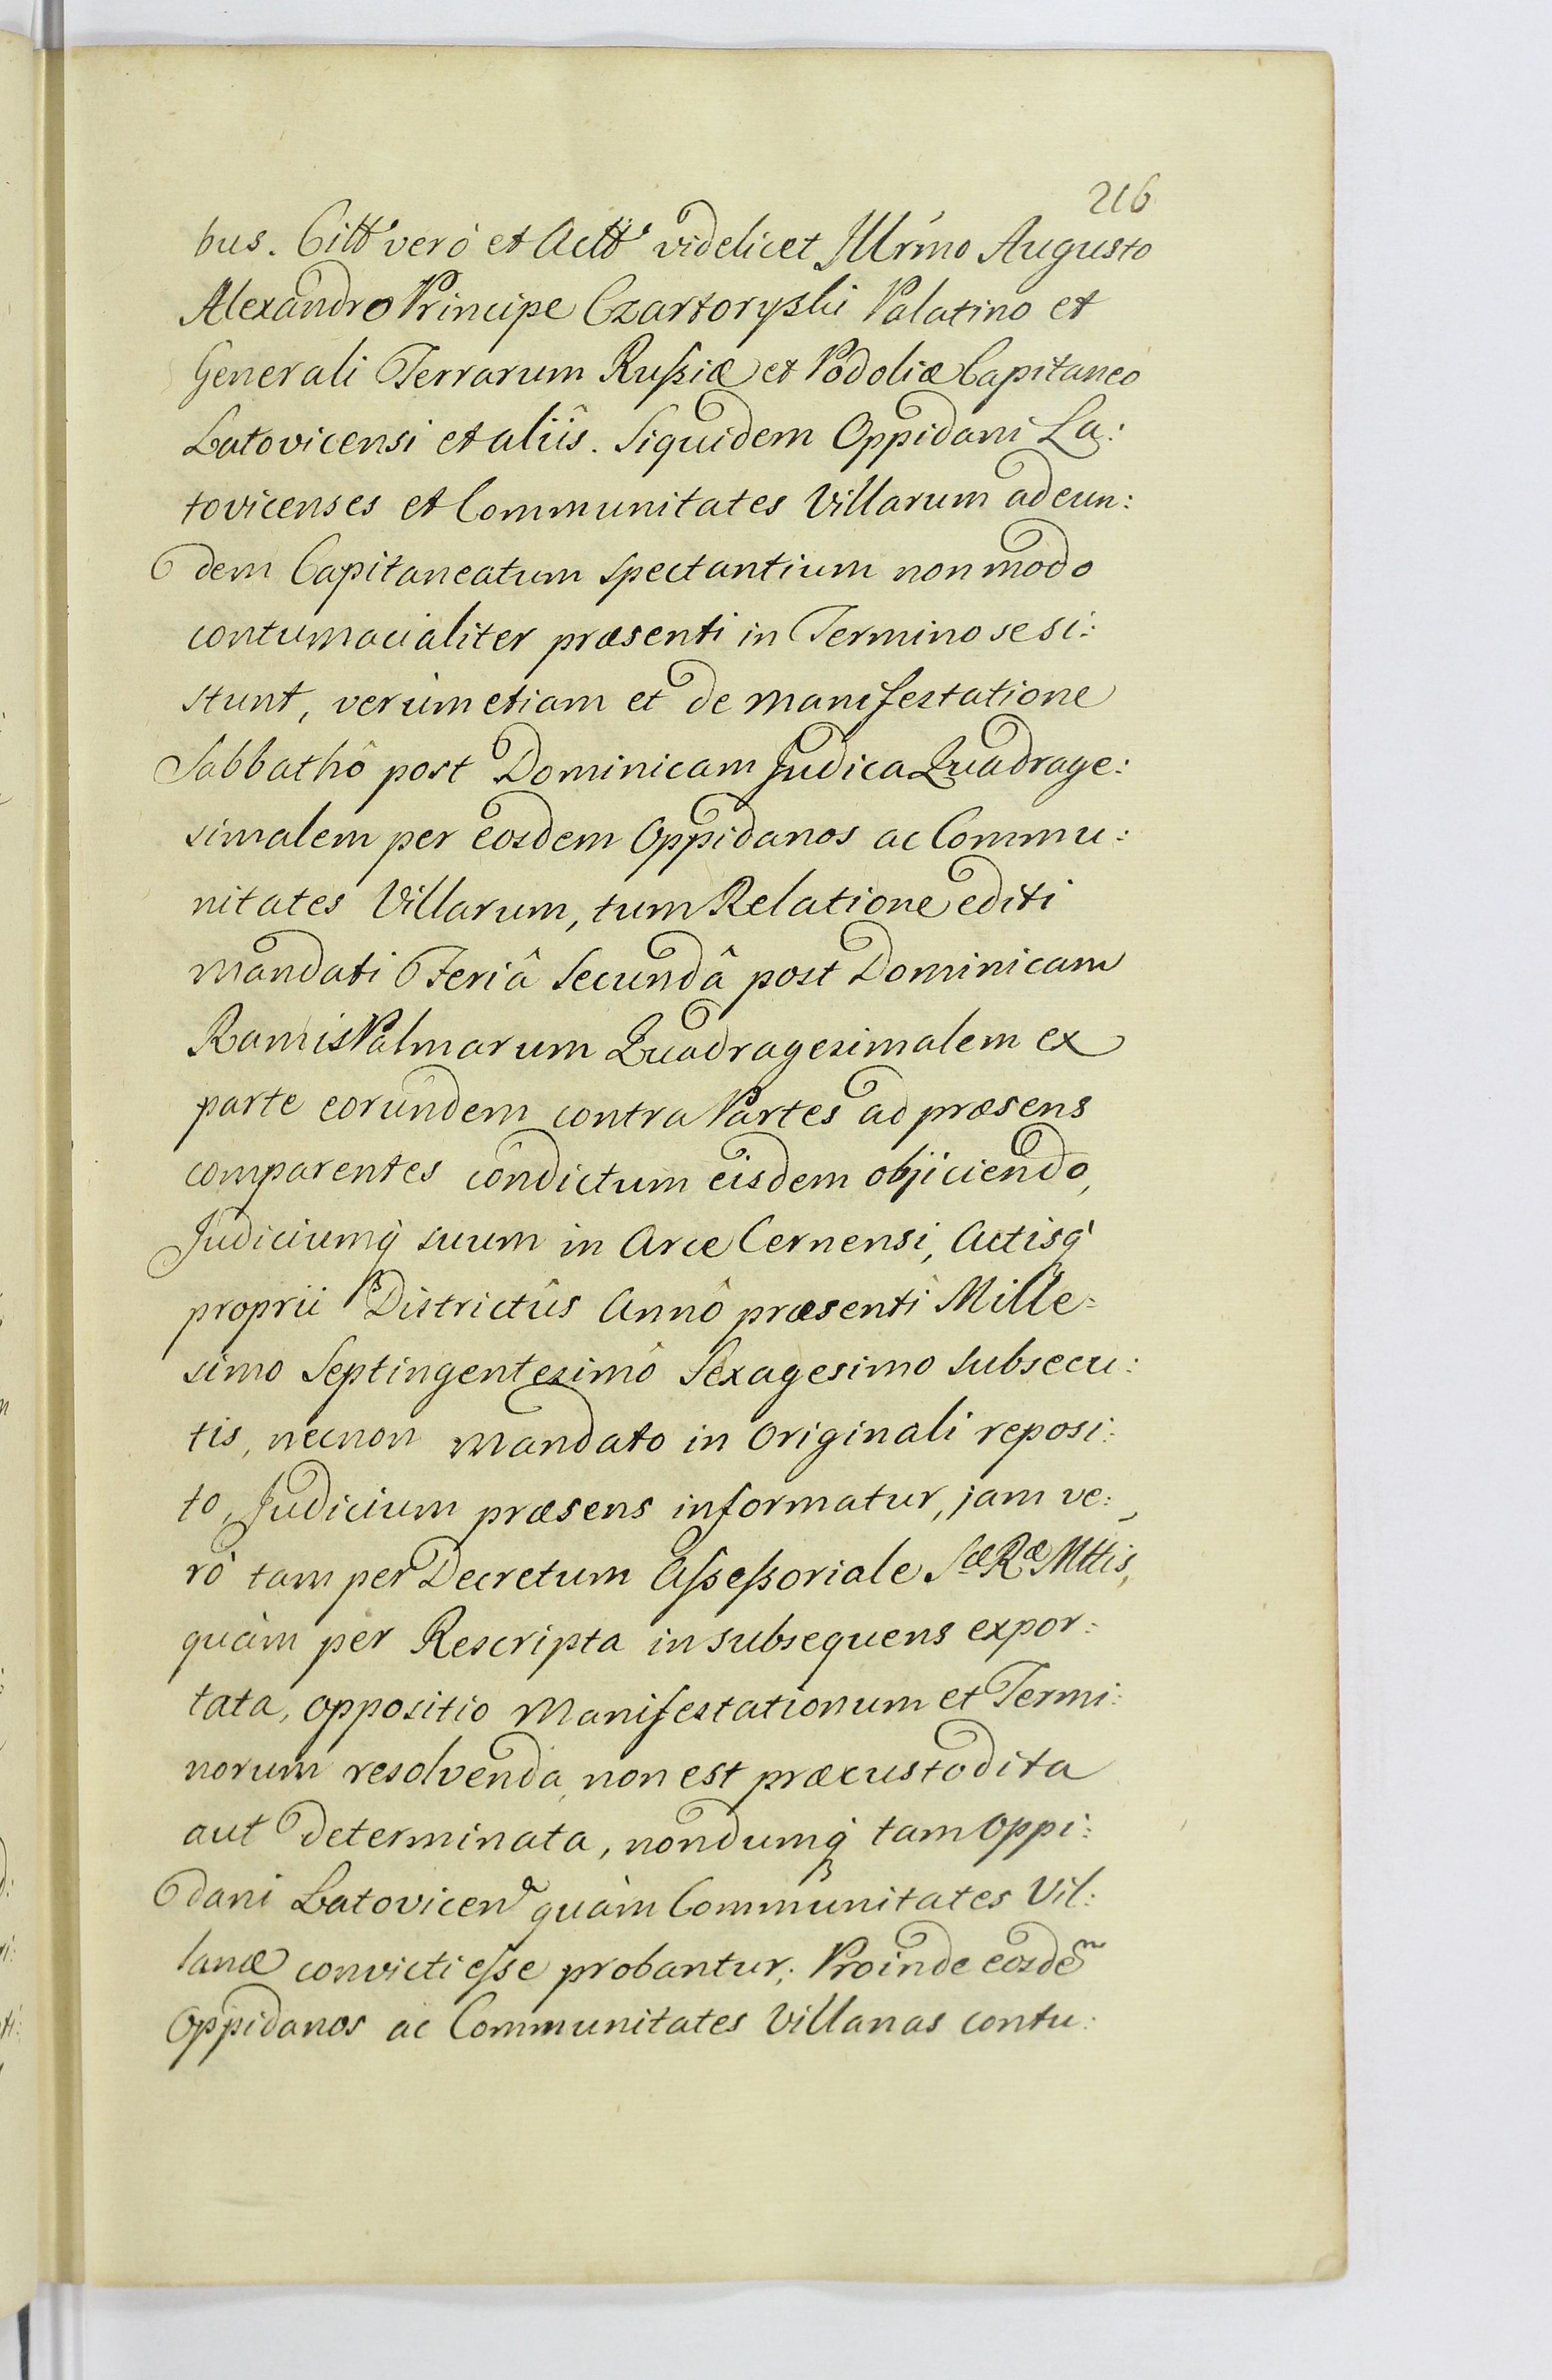 216
bus. Citt' verò et Actt' videlicet Illr̃mo Augusto
Alexandro Principe Czartoryski Palatino et
Generali Terrarum Russiæ et Podoliæ Capitaneo
Latovicensi et aliîs. Siquidem Oppidani La:
tovicenses et Communitates Villarum ad eun:
dem Capitaneatum spectantium non modo
contumacialiter præsenti in Termino se si:
stunt, verùm etiam et de Manifestatione
Sabbathô post Dominicam Judica Quadrage:
simalem per eosdem Oppidanos ac Commu:
nitates Villarum, tum Relatione editi
Mandati Feriâ Secundâ post Dominicam
Ramis Palmarum Quadragesimalem ex
parte eorundem contra Partes ad præsens
comparentes condictum eisdem objiciendo,
Judiciumq́ suum in Arce Cernensi, Actisq́
proprii Districtûs Annô præsenti Mille:
simo Septingentesimô Sexagesimo subsecu:
tis, necnon Mandato in Originali reposi:
to, Judicium præsens informatur, jam ve:
rò tam per Decretum Assessoriale Sæ Ræ Mttis,
quàm per Rescripta in subsequens expor:
tata, oppositio Manifestationum et Termi:
norum resolvenda, non est præcustodita
aut determinata, nondumq́ tam Oppi:
dani Latovicen̄ quàm Communitates Vil:
lanæ convicti esse probantur; Proinde eosdem
Oppidanos ac Communitates Villanas contu: